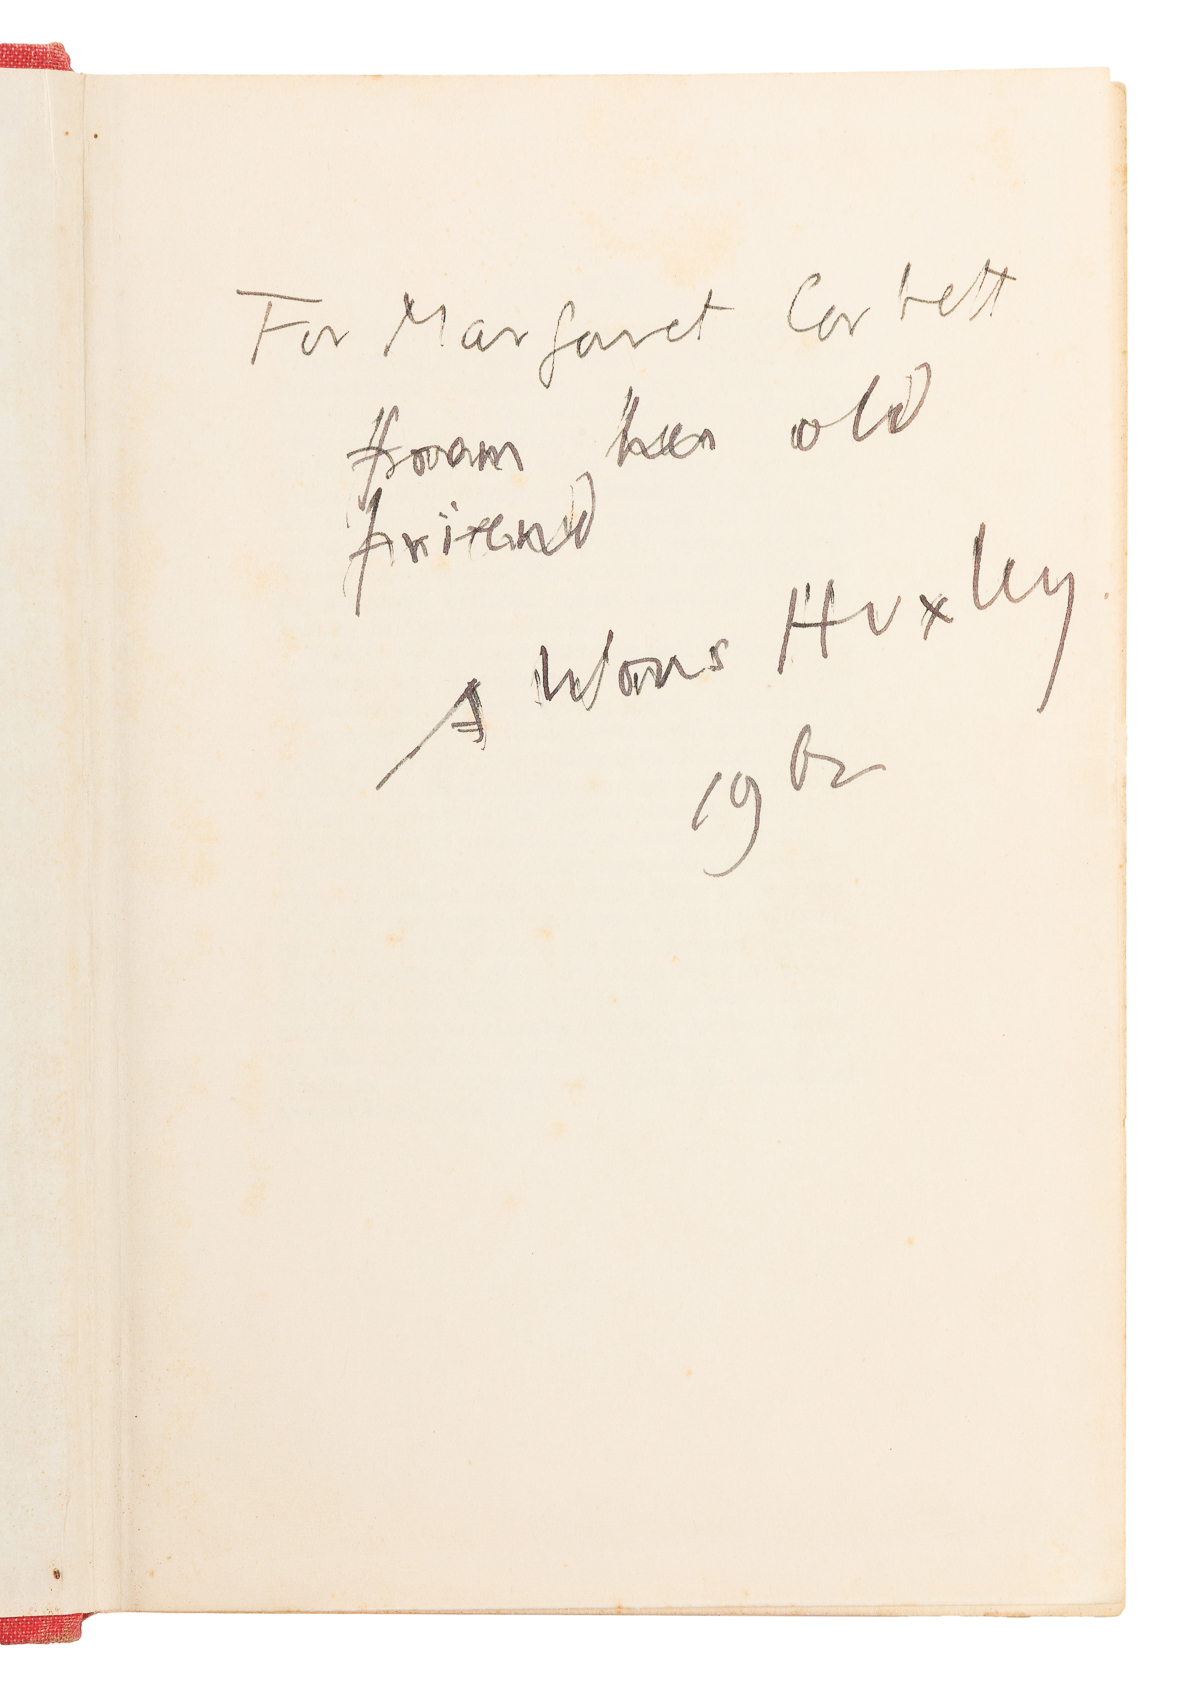 For Margaret Corbett
from her old
friend
Aldous Huxley.
1962